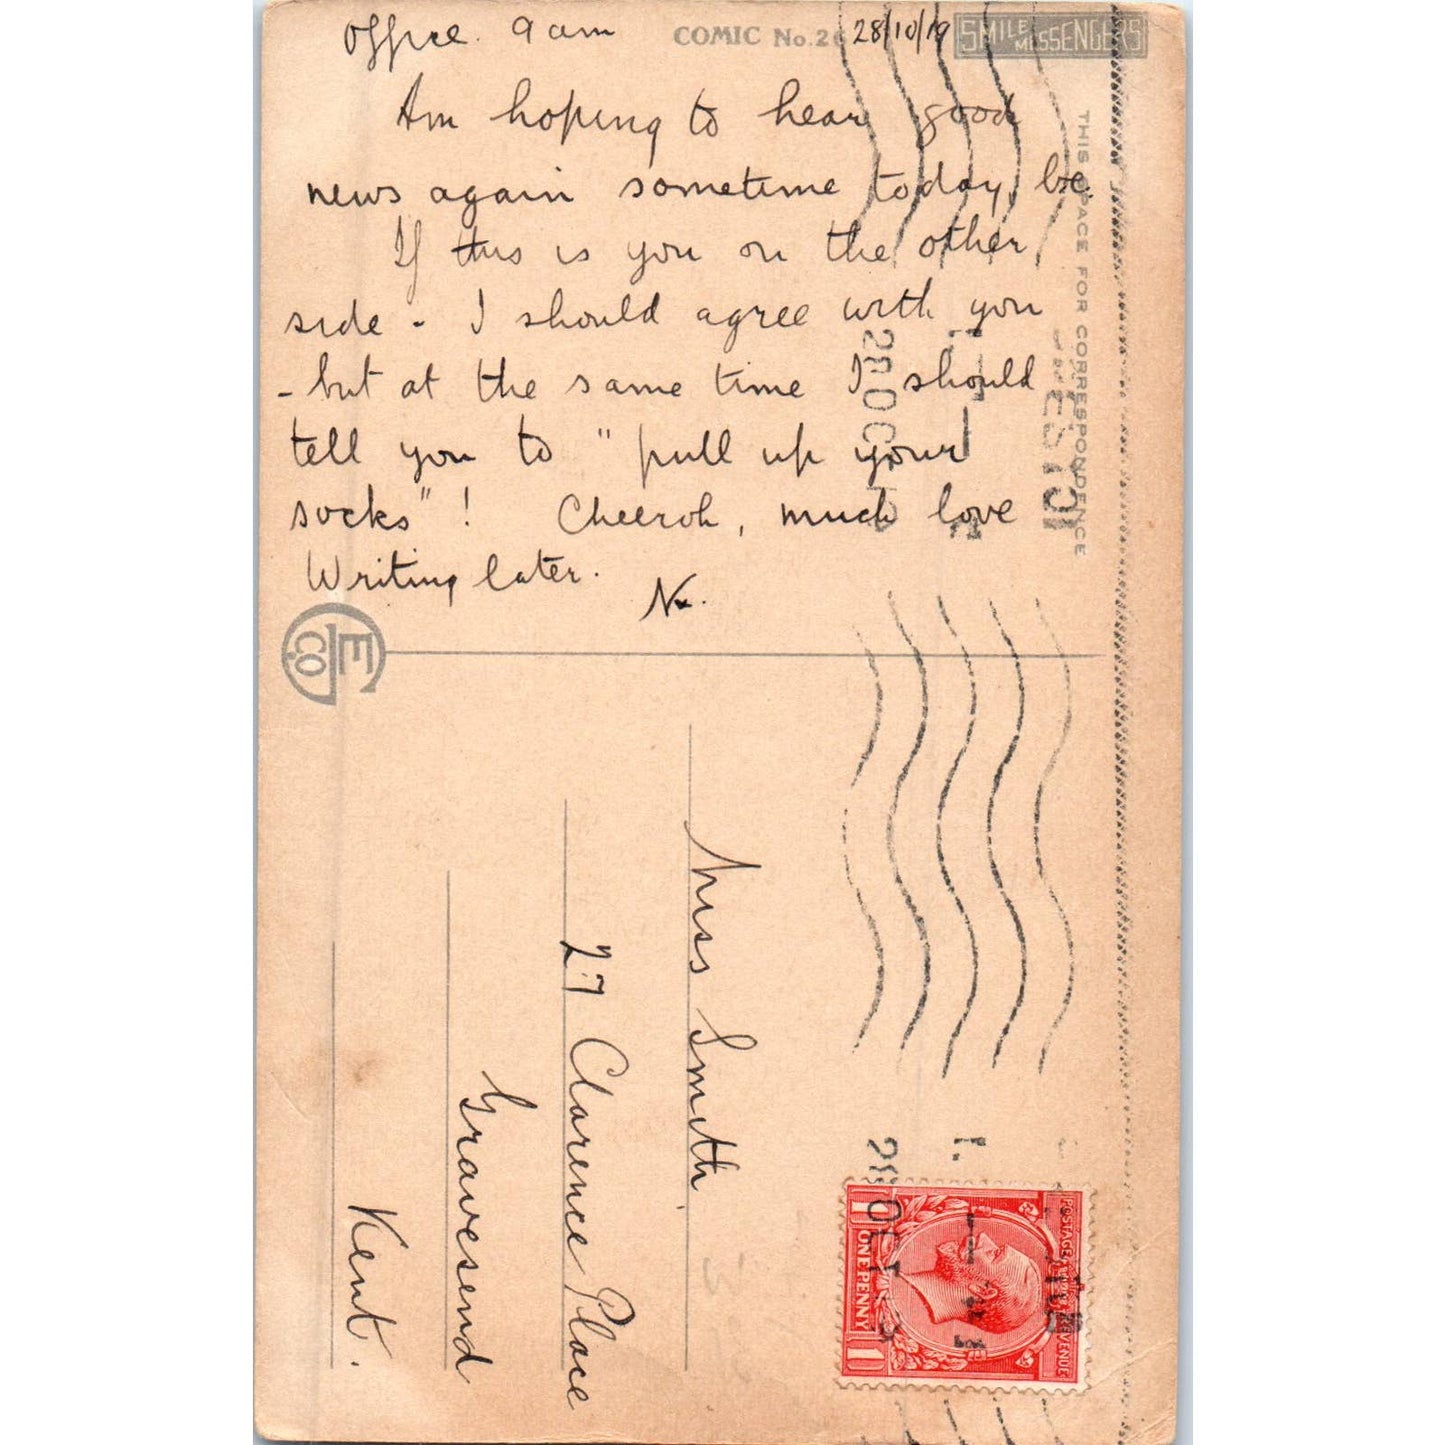 Office. 9 am
COMIC No. 26
28/10/19
SMILE MESSENGERS
Am hoping to hear good
news again sometime today,
If this is you on the other
side - I should agree with you
- but at the same time I should
tell you to "pull up your
socks"! Cheeroh, much love
Writing later.
THIS SPACE FOR CORRESPONDENCE
E Co
Miss Smith
27 Clarence Place
Gravesend
Kent.
28 OCT
28 OCT
POSTAGE
REVENUE
1 ONE PENNY 1